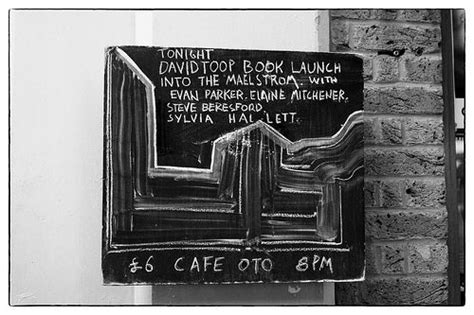 TONIGHT
DAVID TOOP BOOK LAUNCH
INTO THE MAELSTROM. WITH
EVAN PARKER. ELAINE MITCHENER.
STEVE BERESFORD.
SYLVIA HALLETT.
£6 CAFE OTO 8PM